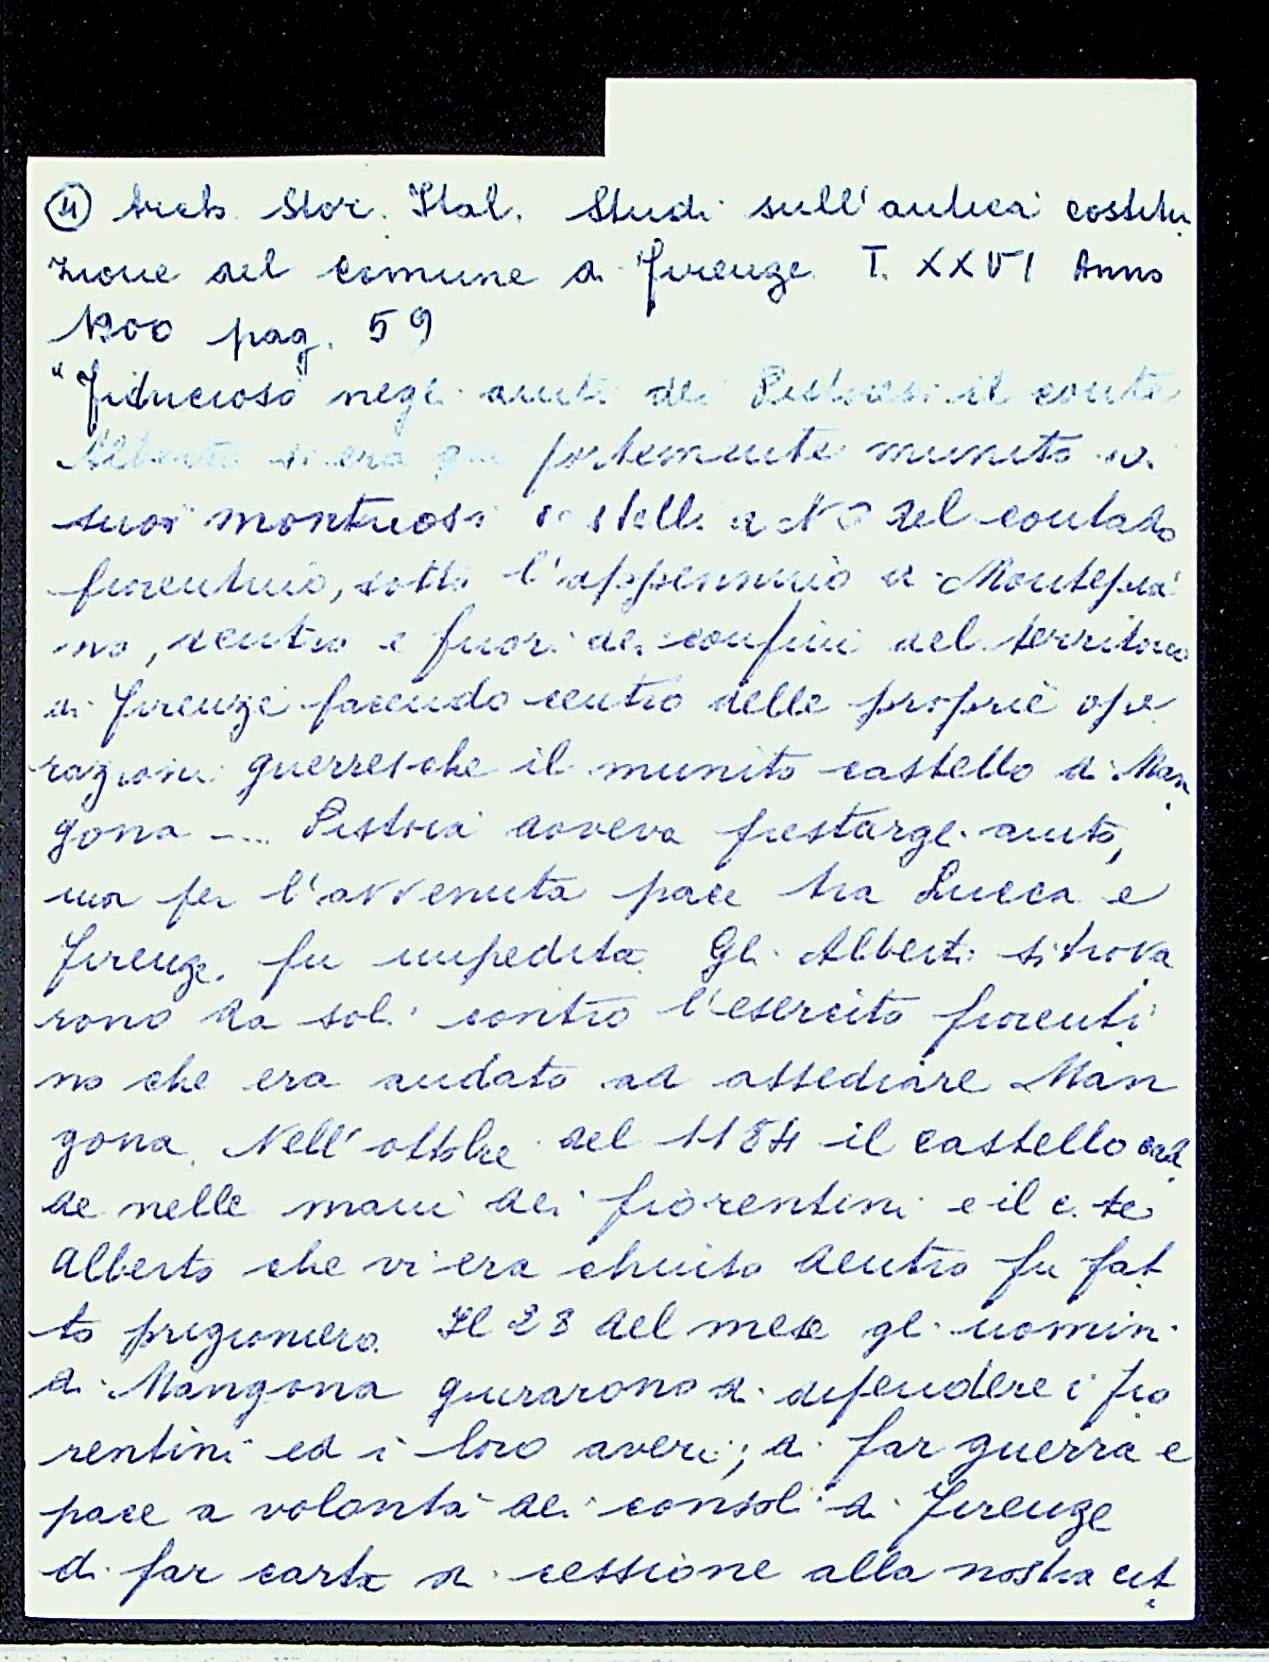 ④ Arch. Stor. Ital. Studi sull'antica costitu
zione del comune di Firenze T. XXVI Anno
1900 pag. 59
"Fiducioso negli aiuti dei Pistoiesi il conte
Alberto si era già fortemente munito nei
suoi montuosi castelli a NO del contado
fiorentino, sotto l'appennino di Montepia
no, dentro e fuori dei confini del territorio
di Firenze facendo centro delle proprie ope
razioni guerresche il munito castello di Man
gona .... Pistoia doveva prestargli aiuto,
ma per l'avvenuta pace tra Lucca e
Firenze, fu impedita. Gli Alberti si trova
rono da soli contro l'esercito fiorenti
no che era andato ad assediare Man
gona. Nell'ottobre del 1184 il castello cad
de nelle mani dei fiorentini e il c.te
Alberto che vi era chiuso dentro fu fat
to prigioniero. Il 28 del mese gli uomini
di Mangona giurarono di difendere i fio
rentini ed i loro averi; di far guerra e
pace a volontà dei consoli di Firenze
di far carta di cessione alla nostra cit